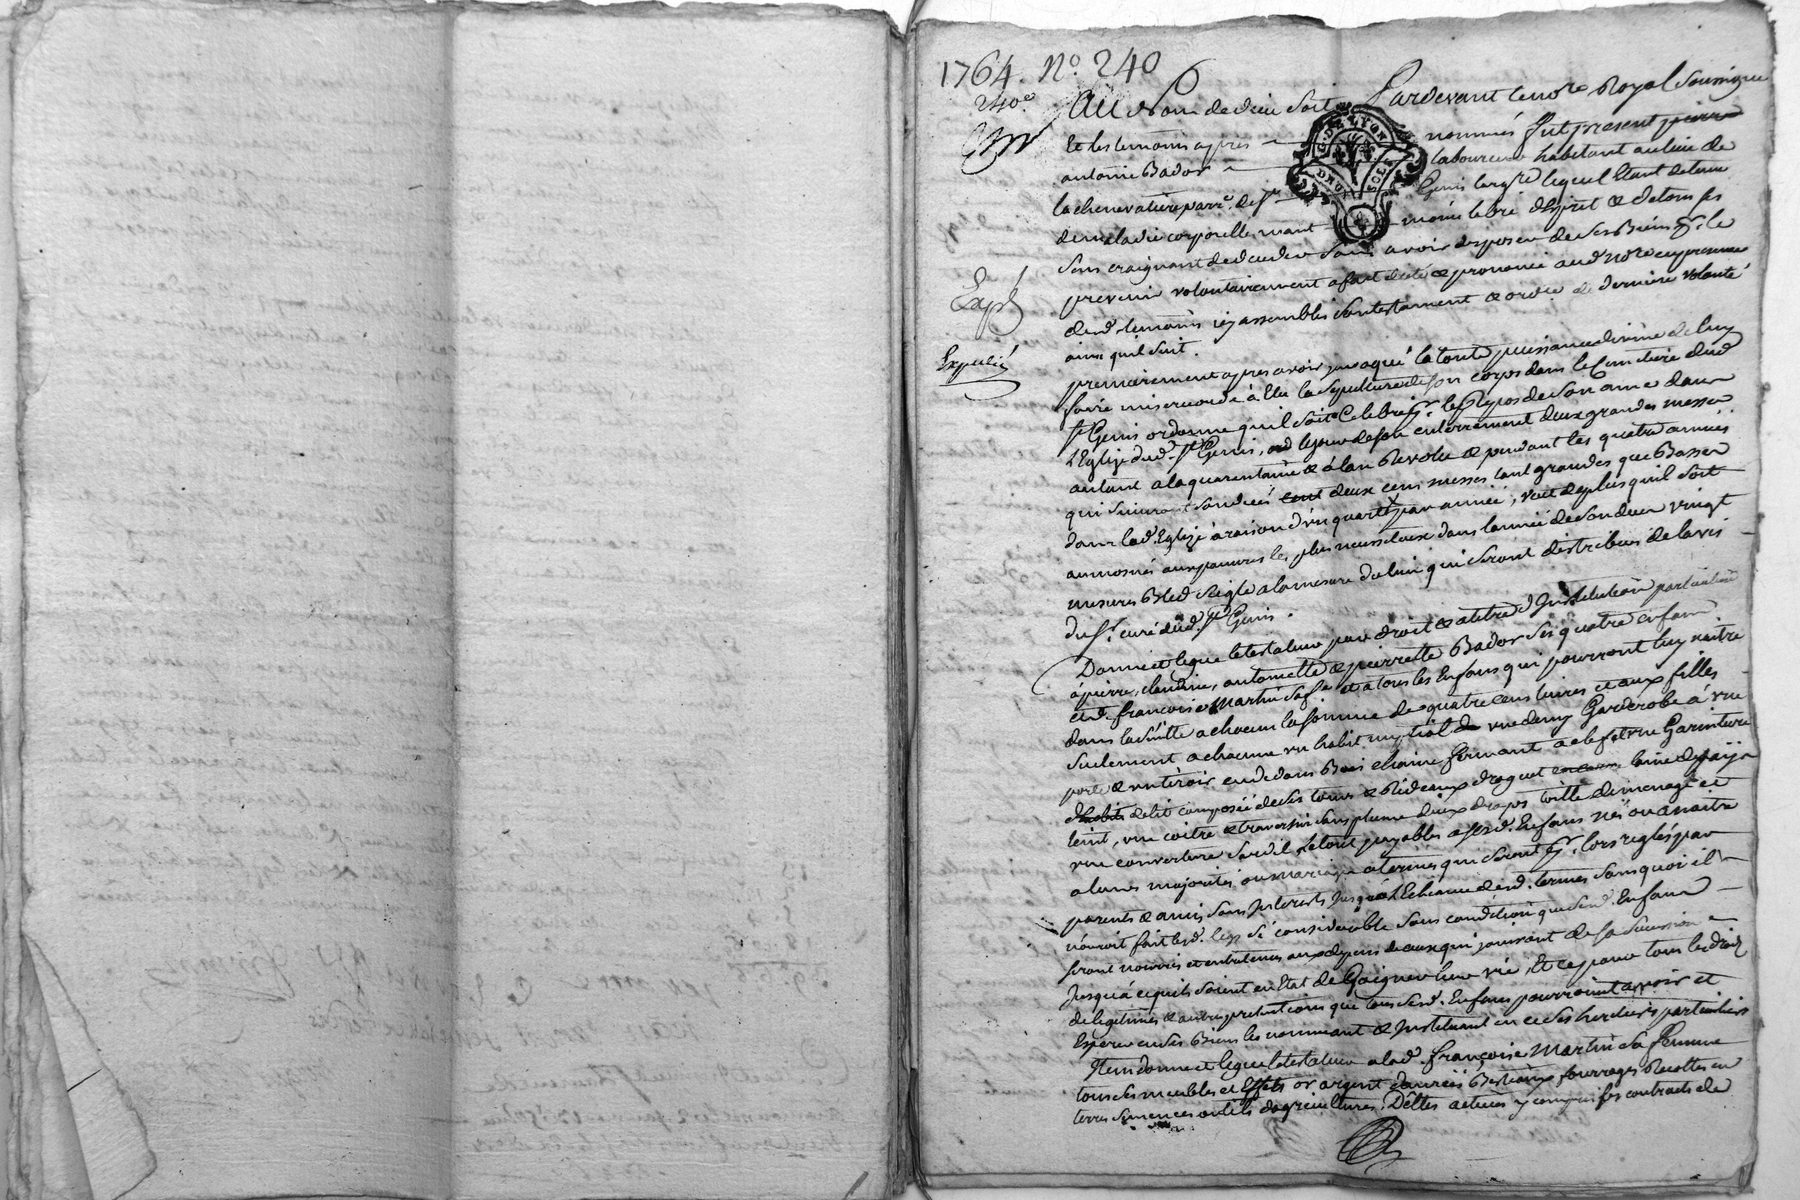 1764. N.o 240
240.e
Au Nom de dieu soit Pardevant le no.re Royal soussigné
Et les temoins apres nommés fut present pierre
antoine Bador laboureur habitant au lieu de
la chenevatiere parr.e de s.t Genis largt.re lequel Etant detenu
de maladie corporelle, neant moins libre d'Esprit & de tous ses
sens craignant de deceder sans avoir disposer de ses Biens p.r le
prevenir volontairement a fait dicté & prononcé aud no.re en presence
desd temoins icy assemblés son testament & ord.ce de derniere volonté
Expédié
ainsi qu'il suit.
premierement apres avoir invoqué la toute puissance divine de luy
faire misericorde à Elu la sepulture de son corps dans le Cimetiere dud
s.t Genis ordonne qu'il soit Celebré p.r le Repos de son ame dans
l'Eglize dud. s.t Genis, le jour de son enterrement deux grandes messes
autant a la quarantaine & à l'an Revolu & pendant les quatre années
qui suivront son decés cent deux cens messes tant grandes que Basses
dans lad. Eglize à raison d'un quart par année, veut de plus qu'il soit
aumosnés aux pauvres les plus necessiteux dans l'année de son deces vingt
mesures Bled seigle a la mesure du lieu qui seront distribués de l'avis
du s.r curé dud. s.t Genis.
Donne et legue le testateur par droit & a titre d'Institution particuliere
à pierre, claudine, antoinette & pierrette Bador ses quatre enfans
et de françoise Martin sa f.e et a tous les Enfans qui pourront luy naitre
dans la suitte a chacun la somme de quatre cens livres et aux filles
seulement a chacune un habit nuptial une demy Garderobe à une
porte & un tiroir en dedans Bois chaine fermant a clef & une Garniture
d'habits de lit composée de ses tours & Rideaux droguet laine de païs
teint, une coitre & traversin sans plume deux draps toille de menage et
une couverture le tout payables a sesd. Enfans nés ou a naitre
a leurs majorités ou mariage a termes qui seront p.r lors reglés par
parents & amis sans Interests jusqu'à l'Echeance desd. termes sans quoi il
n'auroit fait led. legs sé considerable sous condition que sesd. Enfans
seront nourris et entretenus aux depens de ceux qui jouiront de sa succession
jusqu'à ce qu'ils soient en Etat de Gaigner leur vie, Et ce pour tous les droits
de legitimes & autres pretentions que tous sesd. Enfans pourroient avoir et
Esperer en ses Biens les nommant & Instituant en ce ses heritiers particuliers
Item donne et legue le testateur a lad. françoise Martin sa femme
tous ses meubles et Effets or argent danrées Bestiaux fourrages Recoltes en
terre semences outils d'agricultures, Dettes actives y compris ses contracts de